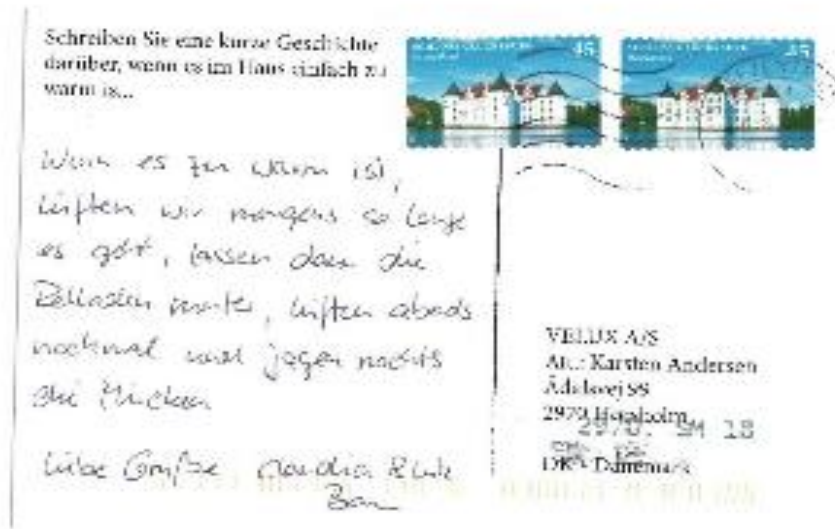 Schreiben Sie eine kurze Geschichte
darüber, wenn es im Haus einfach zu
warm is...
45
45
Wenn es zu warm ist,
lüften wir morgens so lange
es geht, lassen dann die
Rolladen runter, lüften abends
nochmal und jagen nachts
die Mücken
Liebe Grüße Claudia
VELUX A/S
Att.: Karsten Andersen
Ådalsvej 99
2970 Hørsholm
2970. SM 18
DK - Dänemark